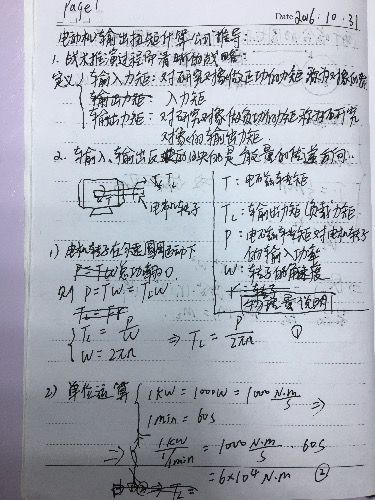 Page 1
Date 2016.10.31
电动机输出扭矩计算公式推导:
1. 战术推演过程即清晰的战略:
定义 输入力矩: 对研究对象做正功的力矩称为对象的
输出力矩: 入力矩
输出力矩: 对研究对象做负功的力矩称为研究
对象的输出力矩
2. 输入、输出反映的是能量的传递方向
T TL
电机转子
T: 电磁转矩
TL: 输出力矩(负载)力矩
P: 电磁转矩对电机转子
的输入功率
W: 转子的角速度
物理量说明
1) 电机转子在匀速圆周运动下
总功率为0
则 P=TW=TLW
TL = P/W
W = 2πn
⇒ TL = P/2πn ①
2) 单位运算
1KW = 1000W = 1000 N·m/S
1min = 60S
⇒
⇒ 1KW/(1/1min) = 1000 N·m/S · 60S
= 6×10⁴ N·m ②